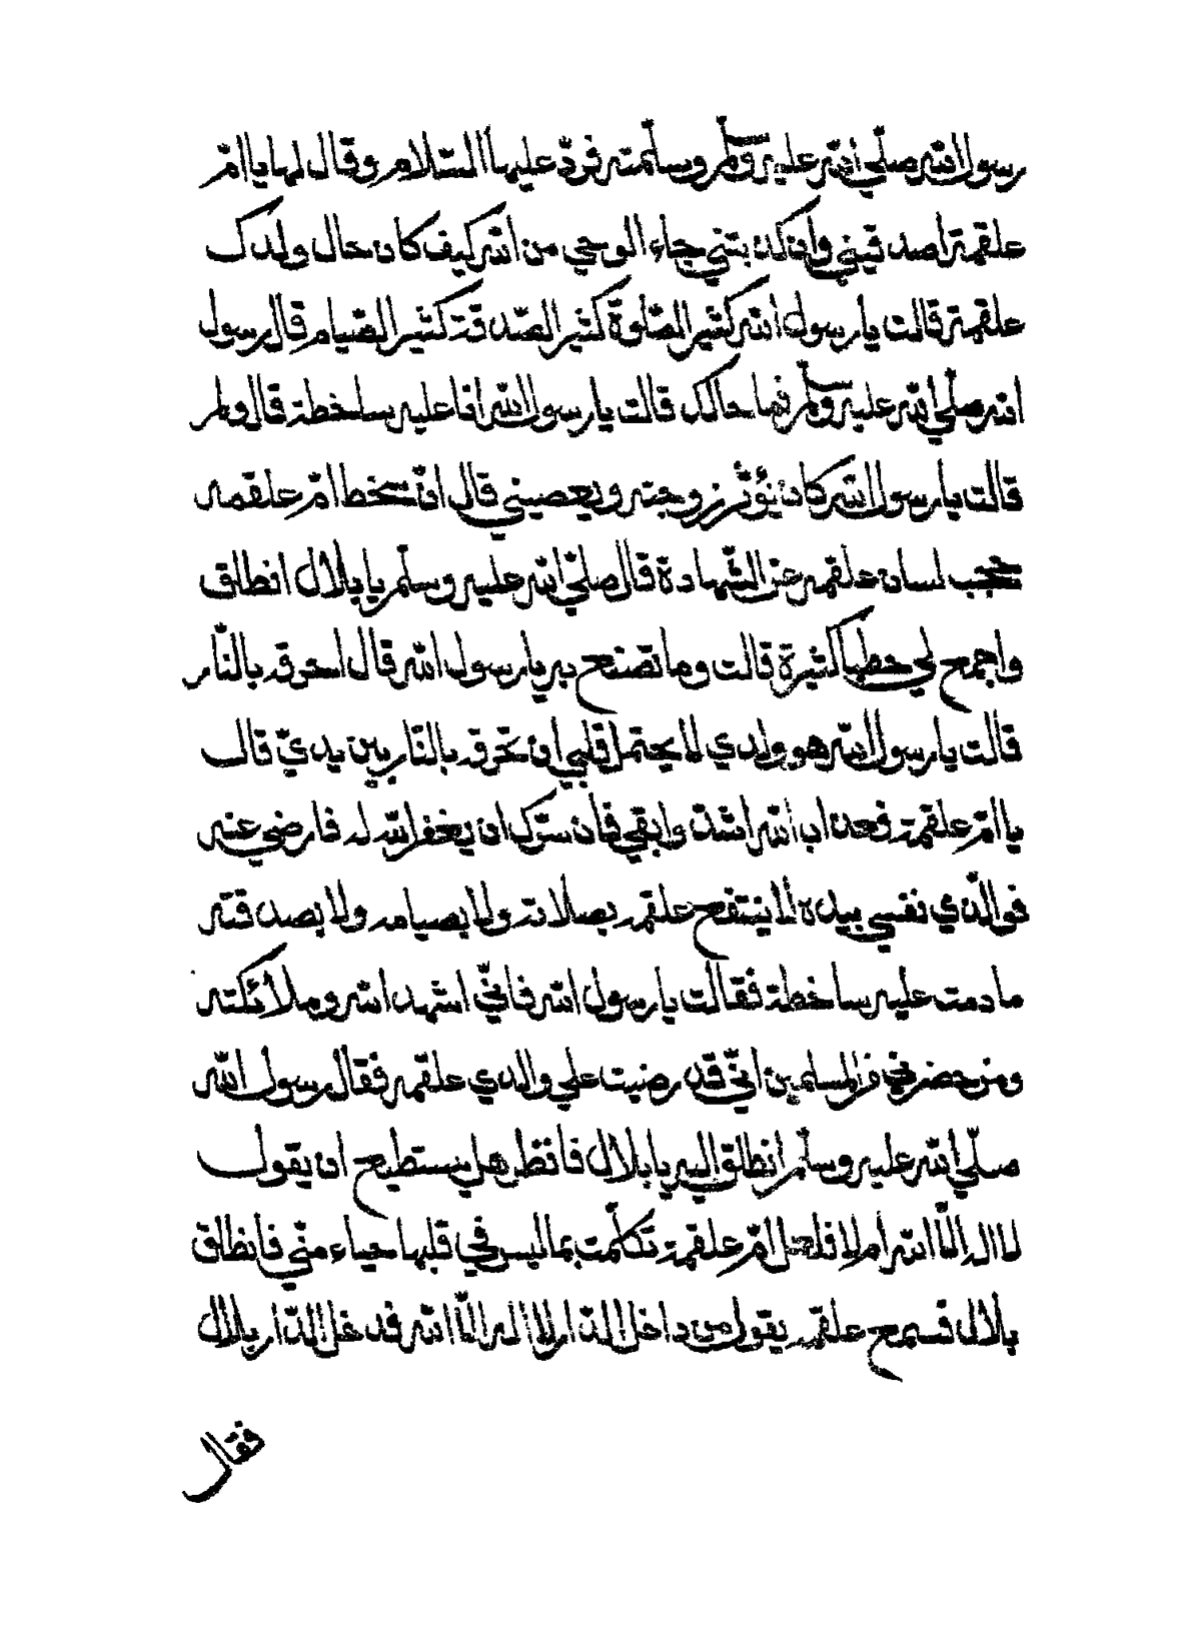 رسول الله صلّي الله عليه وسلّم وسلّمته فردّ عليها السّلام وقال لها يا امّ
علقمة اصدقيني وان كذبتني جاء الوحي من الله كيف كان حال ولدك
علقمة قالت يا رسول الله كثير الصّلوة كثير الصّدقة كثير الصّيام قال رسول
الله صلّي الله عليه وسلّم فما حالك قالت يا رسول الله انا عليه ساخطة قال ولم
قالت يا رسول الله كان يؤثر زوجته ويعصيني قال انّ سخط امّ علقمه
حجب لسان علقمه عن الشّهادة قال صلّي الله عليه وسلّم يا بلال انطلق
واجمع لي حطبا كثيرة قالت وما تصنع به يا رسول الله قال احرقه بالنّار
قالت يا رسول الله هو ولدي لا يحتمل قلبي ان تحرقه بالنّار بين يديّ قال
يا امّ علقمة فعذاب الله اشدّ وابقي فان سرّك ان يغفر الله له فارضي عنه
فوالّذي نفسي بيده لا ينتفع علقمه بصلاته ولا بصيامه ولا بصدقته
ما دمت عليه ساخطة فقالت يا رسول الله فانّي اشهد الله وملائكته
ومن حضرني من المسلمين انّي قد رضيت علي والدي علقمه فقال رسول الله
صلّي الله عليه وسلّم انطلق اليه يا بلال فانظر هل يستطيع ان يقول
لا اله الّا الله ام لا فلعل امّ علقمة تكلّمت بما ليس في قلبها حياء منّي فانطلق
بلال فسمع علقمه يقول من داخل الدّار لا اله الّا الله فدخل الدّار بلال
فقال